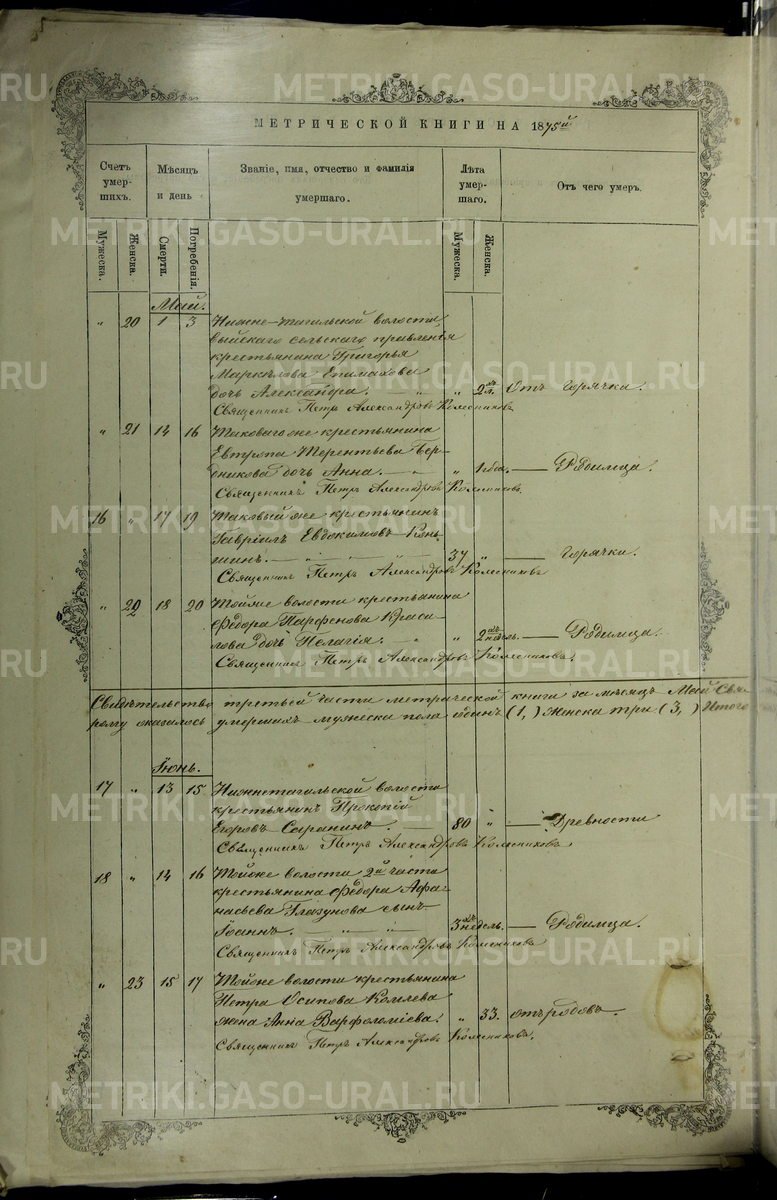 МЕТРИЧЕСКОЙ КНИГИ НА 1875й
Счетъ умер-шихъ.
Мѣсяцъ и день
Званіе, имя, отчество и фамилія умершаго.
Лѣта умер-шаго.
Отъ чего умеръ.
Мужеска.
Женска.
Смерти.
Погребенія.
Мужеска.
Женска.
Май.
" 20 1 3 Нижне-тагильской волости,
выйскаго сельскаго правленія
крестьянина Григорья
Маркелова Епимахова
дочь Александра. " 2 Отъ горячки.
Священникъ Петръ Александровъ Колесниковъ
" 21 14 16 Таковаго же крестьянина
Евтропа Терентьева Бер-
дникова дочь Анна. " — Родимца.
Священникъ Петръ Александровъ Колесниковъ.
16 " 17 19 Таковый же крестьянинъ
Гавріилъ Евдокимовъ Конь-
шинъ. 37 " — горячки.
Священникъ Петръ Александровъ Колесниковъ
" 22 18 20 Тойже волости крестьянина
Федора Парфенова Краси-
лова дочь Пелагія. " 2 — Родимца.
Священникъ Петръ Александровъ Колесниковъ.
Свидѣтельство третьей части метрической книги за мѣсяцъ Май
оказалось умершихъ мужеска пола одинъ (1,) женска три (3,) Итого
Іюнь.
17 " 13 15 Нижнетагильской волости
крестьянинъ Прокопій
Егоровъ Саранинъ. 80 " — Древности
Священникъ Петръ Александровъ Колесниковъ
18 " 14 16 Тойже волости 2й части
крестьянина Федора Афа-
насьева Глазунова сынъ
Іоаннъ. 3 недель. — Родимца.
Священникъ Петръ Александровъ Колесниковъ
" 23 15 17 Тойже волости крестьянина
Петра Осипова Комлева
жена Анна Варфоломіева. " 33. отъ родовъ.
Священникъ Петръ Александровъ Колесниковъ.
METRIKI.GASO-URAL.RU